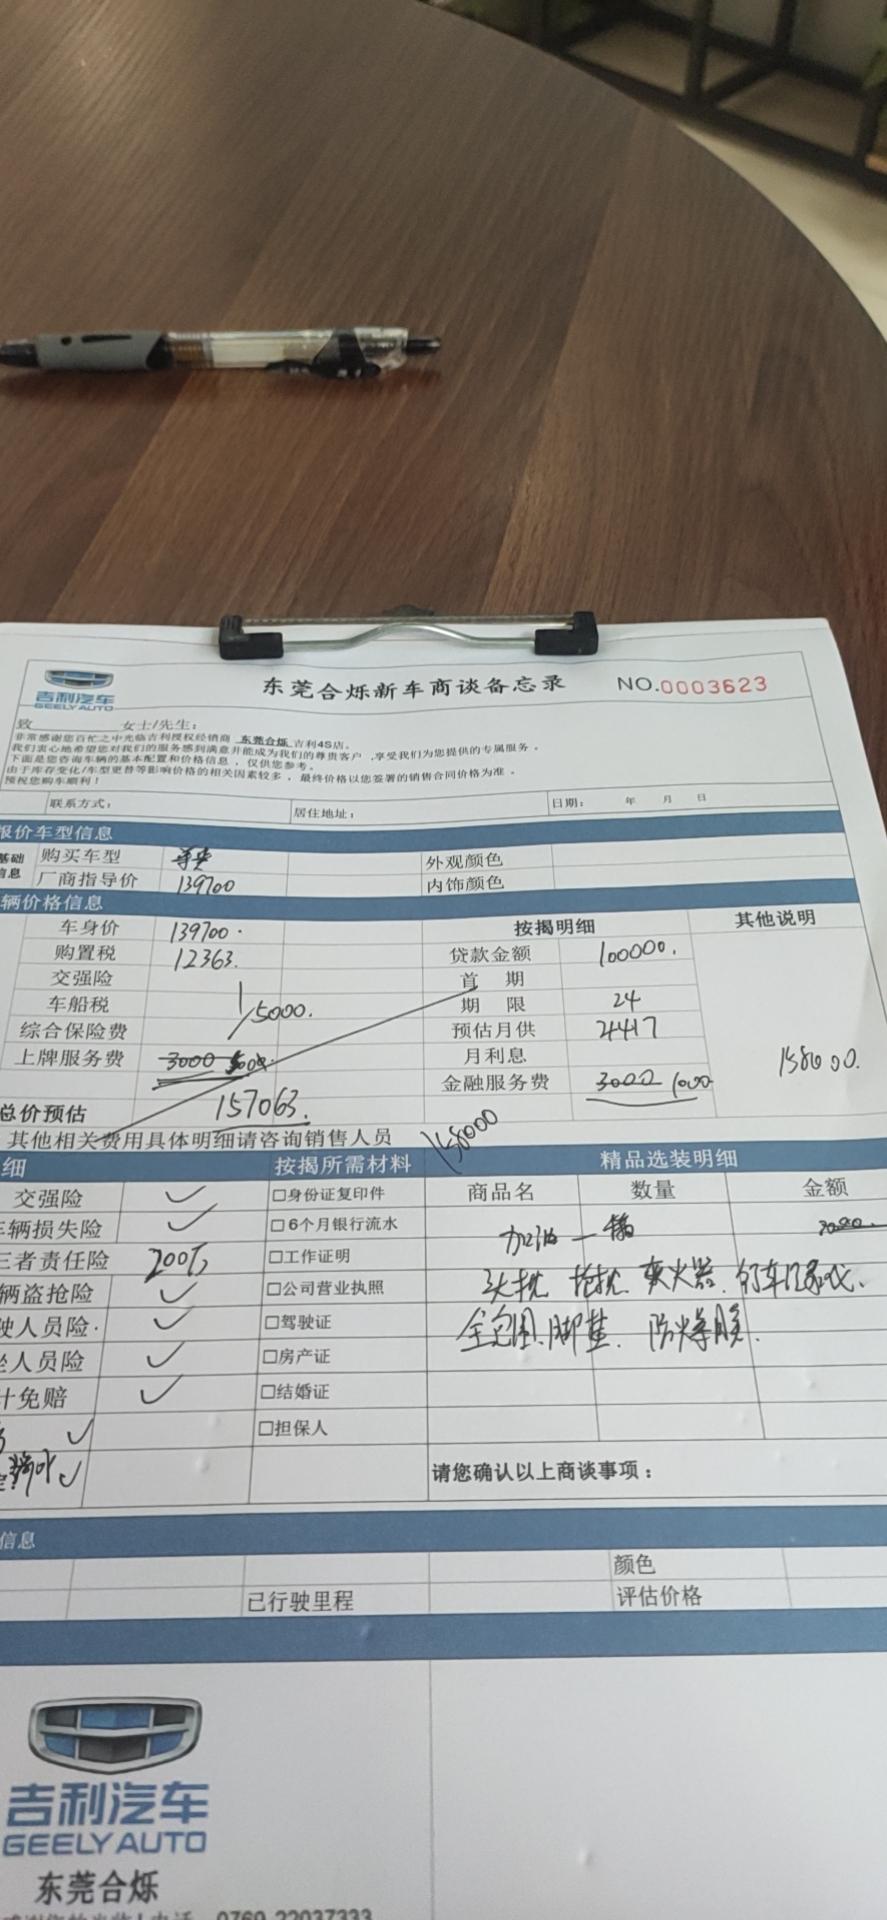 吉利汽车
GEELY AUTO
东莞合烁新车商谈备忘录 NO.0003623
致 女士/先生：
非常感谢您百忙之中光临吉利授权经销商 东莞合烁 吉利4S店。
我们衷心地希望您对我们的服务感到满意并能成为我们的尊贵客户，享受我们为您提供的专属服务。
下面是您咨询车辆的基本配置和价格信息，仅供您参考。
由于库存变化/车型更替等影响价格的相关因素较多，最终价格以您签署的销售合同价格为准。
预祝您购车顺利！
联系方式： 居住地址： 日期： 年 月 日
报价车型信息
基础 购买车型 尊贵 外观颜色
信息 厂商指导价 139700 内饰颜色
辆价格信息
车身价 139700. 按揭明细 其他说明
购置税 12363. 贷款金额 100000.
交强险 首 期
车船税 1/5000. 期 限 24
综合保险费 预估月供 4417
上牌服务费 3000 500 月利息 158000.
金融服务费 3000 1000
总价预估 157063.
其他相关费用具体明细请咨询销售人员 158000
细 按揭所需材料 精品选装明细
交强险 ✓ □身份证复印件 商品名 数量 金额
车辆损失险 ✓ □6个月银行流水 加油一箱 2000.
三者责任险 200万 □工作证明
辆盗抢险 ✓ □公司营业执照 头枕 抱枕 灭火器
驶人员险 ✓ □驾驶证 全包围脚垫. 防爆膜.
坐人员险 ✓ □房产证
计免赔 ✓ □结婚证
✓ □担保人
✓ 请您确认以上商谈事项：
信息
颜色
已行驶里程 评估价格
吉利汽车
GEELY AUTO
东莞合烁
0769-22037333